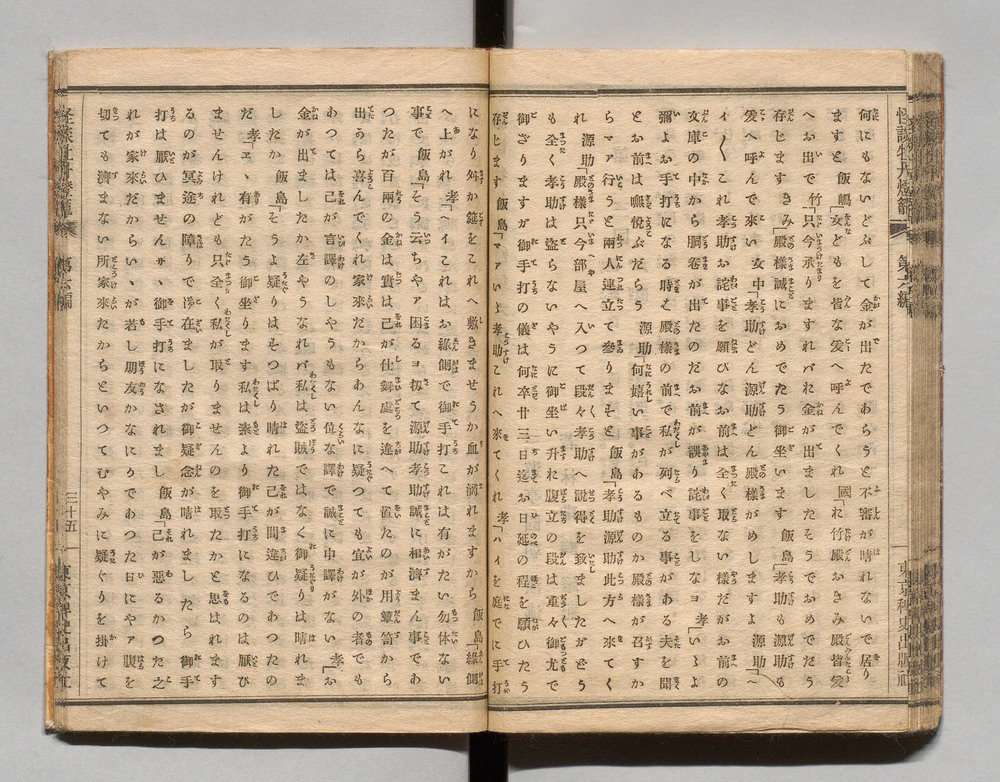 怪談牡丹燈籠 第六編 東京稗史出版社
何にもないとふして金が出たであらうと不審が晴れないで居り
ますと 飯嶋「女どもを皆な爰へ呼んでくれ 國「お竹殿おきみ殿皆爰
へお出で 竹「只今承りますれバお金が出ましたそうでおめでたう
存じます きみ「殿様誠におめでたう御坐います 飯島「孝助も源助も
爰へ呼んで來い 女中「孝助どん源助どん殿様がめしますよ 源助「へ
イ〱これ孝助お詫事を願ひなお前は全く取ない様だがお前の
文庫の中から胴巻が出たのだお前が誤り詫事をしなヨ 孝「いゝよ
彌よお手打になる時ハ殿様の前で私が列べ立る事がある夫を聞
とお前は嘸悦ぶだらう 源助「何嬉い事があるものか殿様が召すか
らマア行うと兩人連立て參りますと 飯島「孝助源助此方へ來てく
れ 源助「殿様只今部屋へ入つて段々孝助へ説得を致ましたがどう
も全く孝助は盗らないやうに御坐い升れ腹立の段は重々御尤で
御ざりますが御手打の儀は何卒廿三日迄お日延の程を願ひたう
存じます 飯島「マアいゝよ孝助これへ來てくれ 孝「ハイを庭に手打
になり升か筵をこれへ敷きませうか血が滴れますから 飯島「緣側
へ上がれ 孝「ヘイこれはお緣側で御手打これは有がたい勿体ない
事で 飯島「そう云ちやァ困るヨ扨て源助孝助誠に相濟まん事であ
つたが百兩の金は實は己が仕舞處を違へて置たのが用簞笥から
出うら喜んでくれ家來だからあんなに疑つても宜が外の者でも
あつては己が言譯のしやうもない位な譯で誠に申譯がない 孝「お
金が出ましたか左やうなれバ私は盗賊ではなく御疑りは晴れま
したか 飯島「そうよ疑りはすつぱり晴れた己が間違ひであつたの
だ 孝「エヽ有がたう御坐ります私は素より御手打になるのは厭ひ
ませんけれども只全く私が取りませんのを取たかと思はれます
るのが冥途の障りで御在ましたが御疑念が晴れましたら 御手
打は厭ひません サヽ御手打になされまし 飯島「己が惡るかつた之
れが家來だからいゝが若し朋友かなにりであつた日にやァ腹を
切ても濟まない所家來だからといつてむやみに疑ぐりを掛けて
怪談牡丹燈籠 第六編 三十五 東京稗史出版社